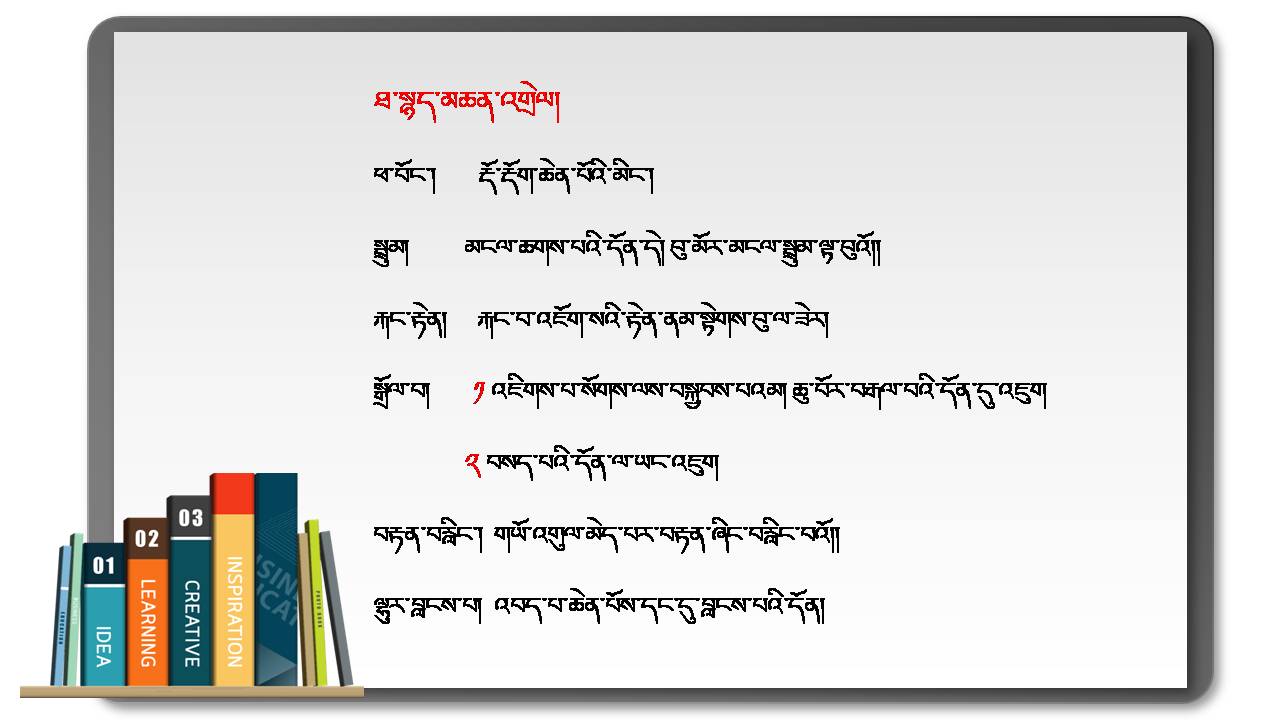 ཐ་སྙད་མཆན་འགྲེལ།
ཕ་བོང་། རྡོ་རྡོག་ཆེན་པོའི་མིང་།
སྦྲུམ། མངལ་ཆགས་པའི་དོན་ཏེ། བུ་མོར་མངལ་སྦྲུམ་ལྟ་བུའོ།།
རྐང་རྟེན། རྐང་པ་འཇོག་སའི་རྟེན་ནམ་སྟེགས་བུ་ལ་ཟེར།
སྒྲོལ་བ། ༡ འཇིགས་པ་སོགས་ལས་བསྐྱབས་པའམ། ཆུ་བོར་བརྒལ་བའི་དོན་དུ་འཇུག
༢ བསད་པའི་དོན་ལ་ཡང་འཇུག
བརྟན་བརླིང་། གཡོ་འགུལ་མེད་པར་བརྟན་ཞིང་བརླིང་བའོ།།
ལྷུར་བླངས་པ། འབད་པ་ཆེན་པོས་དང་དུ་བླངས་པའི་དོན།
01
02
03
IDEA
LEARNING
CREATIVE
INSPIRATION